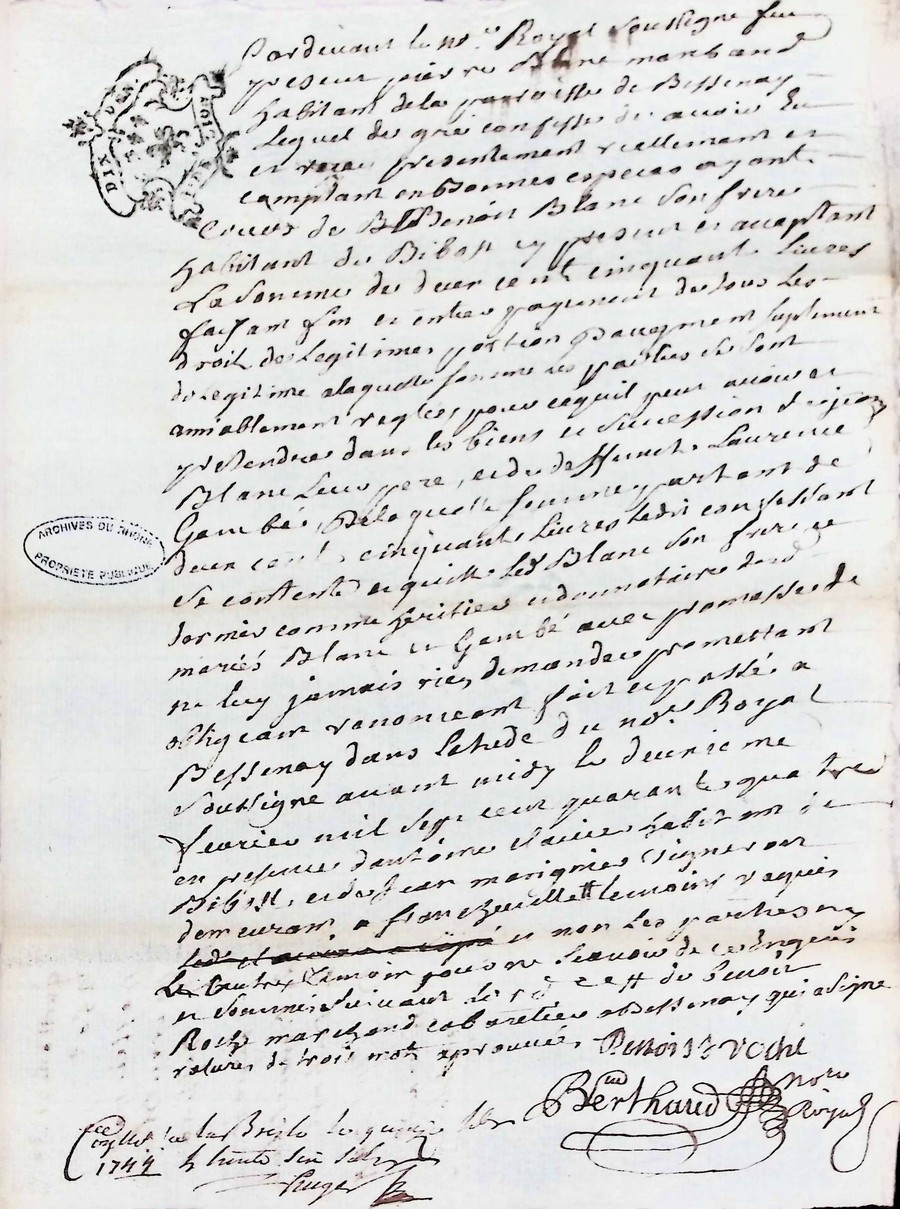 Pardevant le no.re Royal Soussigne fut
present pierre Blanc marchand
habitant de la parroisse de Bessenay
Lequel de gré confesse de avoir Eu
et receu presentement reellement et
comptant en Bonnes especes ayant
Cours de Benoit Blanc son frere
habitant de Bibost cy present et acceptant
La Somme de deux cent cinquant livres
faisant fin et entier payement de tous les
droit de Legitimes portion daugment suplement
de legitime a laquelle somme les parties se sont
amiablement reglés pour ce quil peut avoir et
pretendre dans les biens et succession de jean
Blanc Leur pere, et de deffuncte Laurence
Gambé, De laquelle somme partant de
deux cent cinquant livres ledit confessant
se contente et quitte led Blanc son frere
comme heritier et donnataire desd
mariés Blanc et Gambé avec promesse de
ne luy jamais rien demander promettant
obligeant renonceant fait et passé a
Bessenay dans letude du no.re Royal
soussigne avant midy le deuxieme
fevrier mil sept cent quarante quatre
en presence dantoine habitant de
Bibost, et de Jean vigneron
demeurant a francheville # temoins requis
et non les parties ny
Le Autre temoin pour ne scavoir de ce enquis
et sommés suivant # de Benoit
Roche marchand cabaretier a Bessenay qui a signe
ratures de trois mots aprouvées Benoist Roche
Berthaud no.re
Royal
DIX
ARCHIVES DU RHÔNE
PROPRIETE PUBLIQUE
la Bresle le quinze
1744 trente six sols